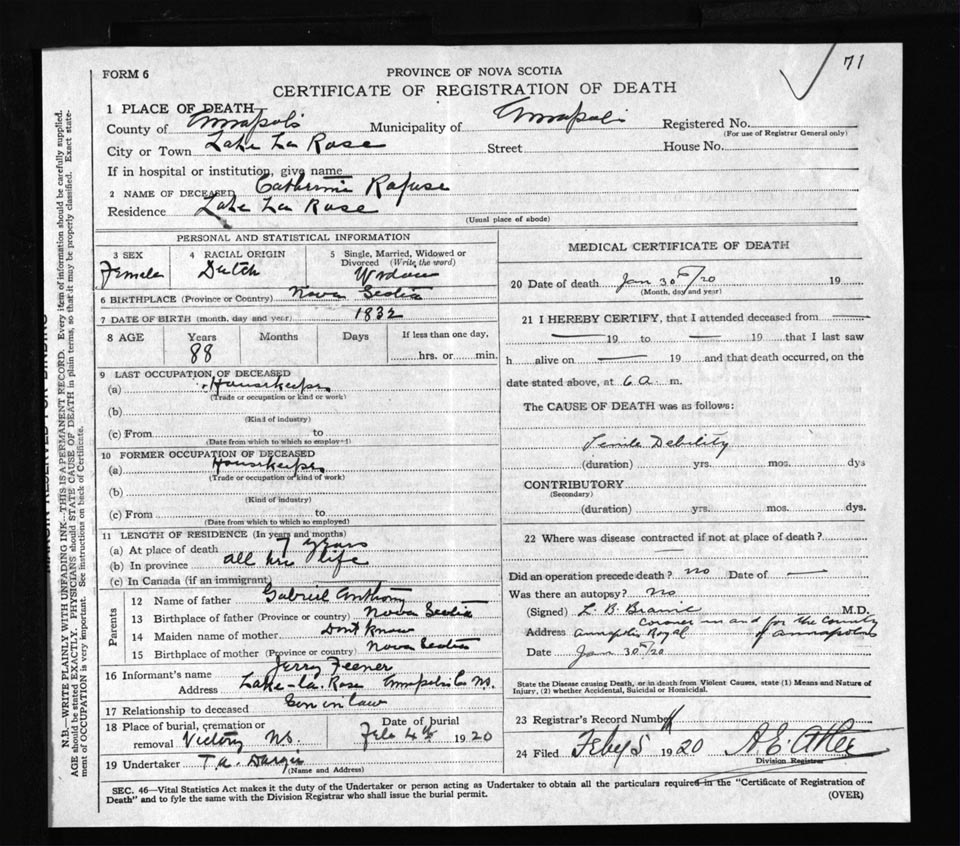 71
FORM 6
PROVINCE OF NOVA SCOTIA
CERTIFICATE OF REGISTRATION OF DEATH
1 PLACE OF DEATH
County of Annapolis Municipality of Annapolis Registered No.
(For use of Registrar General only)
City or Town Lake La Rose Street House No.
If in hospital or institution, give name
2 NAME OF DECEASED Catherine Rafuse
Residence Lake La Rose
(Usual place of abode)
PERSONAL AND STATISTICAL INFORMATION
3 SEX 4 RACIAL ORIGIN 5 Single, Married, Widowed or Divorced (Write the word)
Female Dutch Widow
6 BIRTHPLACE (Province or Country) Nova Scotia
7 DATE OF BIRTH (month, day and year) 1832
8 AGE Years Months Days If less than one day,
88 hrs. or min.
9 LAST OCCUPATION OF DECEASED
(a) Housekeeper
(Trade or occupation or kind or work)
(b)
(Kind of industry)
(c) From to
(Date from which to which so employed)
10 FORMER OCCUPATION OF DECEASED
(a) Housekeeper
(Trade or occupation or kind of work)
(b)
(Kind of industry)
(c) From to
(Date from which to which so employed)
11 LENGTH OF RESIDENCE (In years and months)
(a) At place of death 7 years
(b) In province all her life
(c) In Canada (if an immigrant)
Parents
12 Name of father Gabriel Anthony
13 Birthplace of father (Province or country) Nova Scotia
14 Maiden name of mother Dont know
15 Birthplace of mother (Province or country) Nova Scotia
16 Informant's name Jerry Feener
Address Lake-La-Rose Annapolis Co N.S.
17 Relationship to deceased Son in law
18 Place of burial, cremation or removal Victory N.S.
Date of burial Feb 4th 1920
19 Undertaker T. A. Dargie
(Name and Address)
MEDICAL CERTIFICATE OF DEATH
20 Date of death Jan 30th/20 19
(Month, day and year)
21 I HEREBY CERTIFY, that I attended deceased from
19 to 19 that I last saw
h alive on 19 and that death occurred, on the
date stated above, at 6 a. m.
The CAUSE OF DEATH was as follows:
Senile Debility
(duration) yrs. mos. dys
CONTRIBUTORY
(Secondary)
(duration) yrs. mos. dys.
22 Where was disease contracted if not at place of death?
Did an operation precede death? no Date of
Was there an autopsy? No
(Signed) L. B. M.D.
coroner in and for the County
Address Annapolis Royal of Annapolis
Date Jan 30th/20
State the Disease causing Death, or in death from Violent Causes, state (1) Means and Nature of
Injury, (2) whether Accidental, Suicidal or Homicidal.
23 Registrar's Record Number
24 Filed Feby 5 1920 A. E.
Division Registrar
SEC. 46—Vital Statistics Act makes it the duty of the Undertaker or person acting as Undertaker to obtain all the particulars required in the "Certificate of Registration of
Death" and to fyle the same with the Division Registrar who shall issue the burial permit.
(OVER)
N.B.—WRITE PLAINLY WITH UNFADING INK—THIS IS A PERMANENT RECORD. Every item of information should be carefully supplied.
AGE should be stated EXACTLY. PHYSICIANS should STATE CAUSE OF DEATH in plain terms, so that it may be properly classified. Exact state-
ment of OCCUPATION is very important. See instructions on back of Certificate.